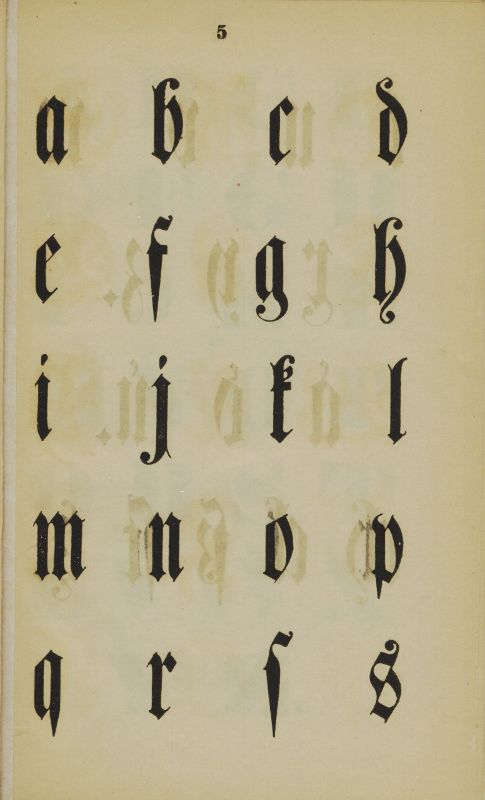 5
a b c d
e f g h
i j k l
m n o p
q r ſ s